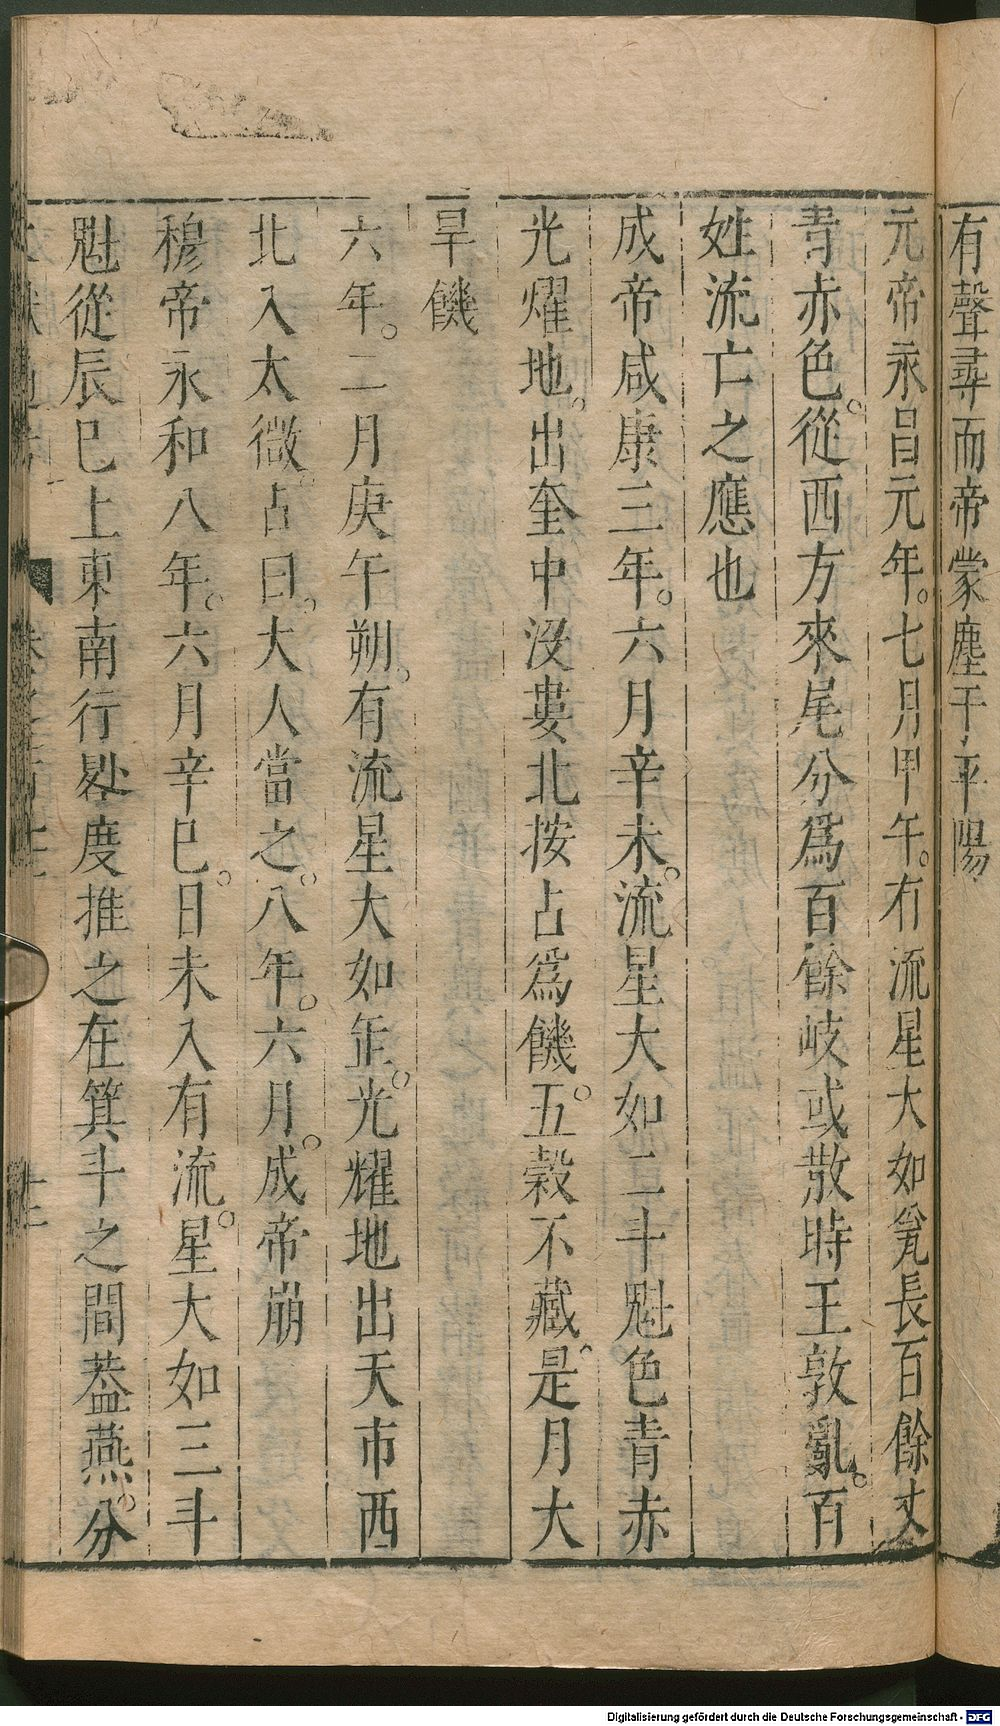 有聲尋而帝蒙塵于平陽
元帝永昌元年。七月甲午。有流星大如瓮長百餘丈
青赤色。從西方來尾分爲百餘岐或散時王敦亂。百
姓流亡之應也
成帝咸康三年。六月辛未。流星大如二斗魁色青赤
光燿地。出奎中沒婁北按占爲饑。五穀不藏。是月大
旱饑
六年。二月庚午朔。有流星大如斗。光耀地出天市西
北入太微。占曰。大人當之。八年。六月。成帝崩
穆帝永和八年。六月辛巳。日未入有流星。大如三斗
魁從辰巳上東南行晷度推之在箕斗之間葢燕。分
Digitalisierung gefördert durch die Deutsche Forschungsgemeinschaft - DFG